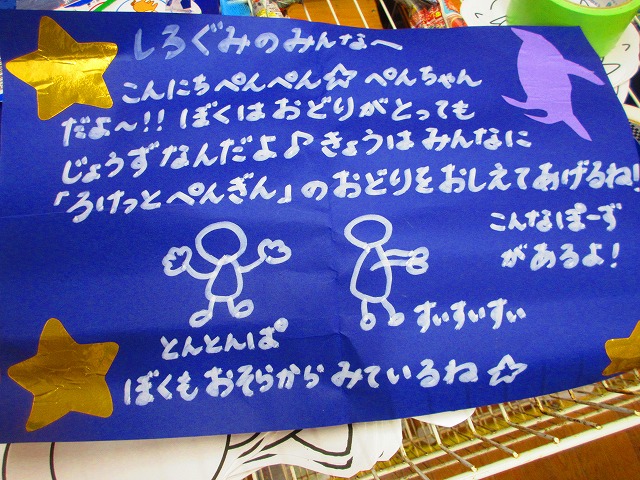 しろぐみのみんなへ
こんにちぺんぺん☆ ぺんちゃん
だよ～!! ぼくはおどりがとっても
じょうずなんだよ♪きょうはみんなに
「ろけっとぺんぎん」のおどりをおしえてあげるね!
こんなぽーず
があるよ!
とんとんぱ
すいすいすい
ぼくもおそらからみているね☆